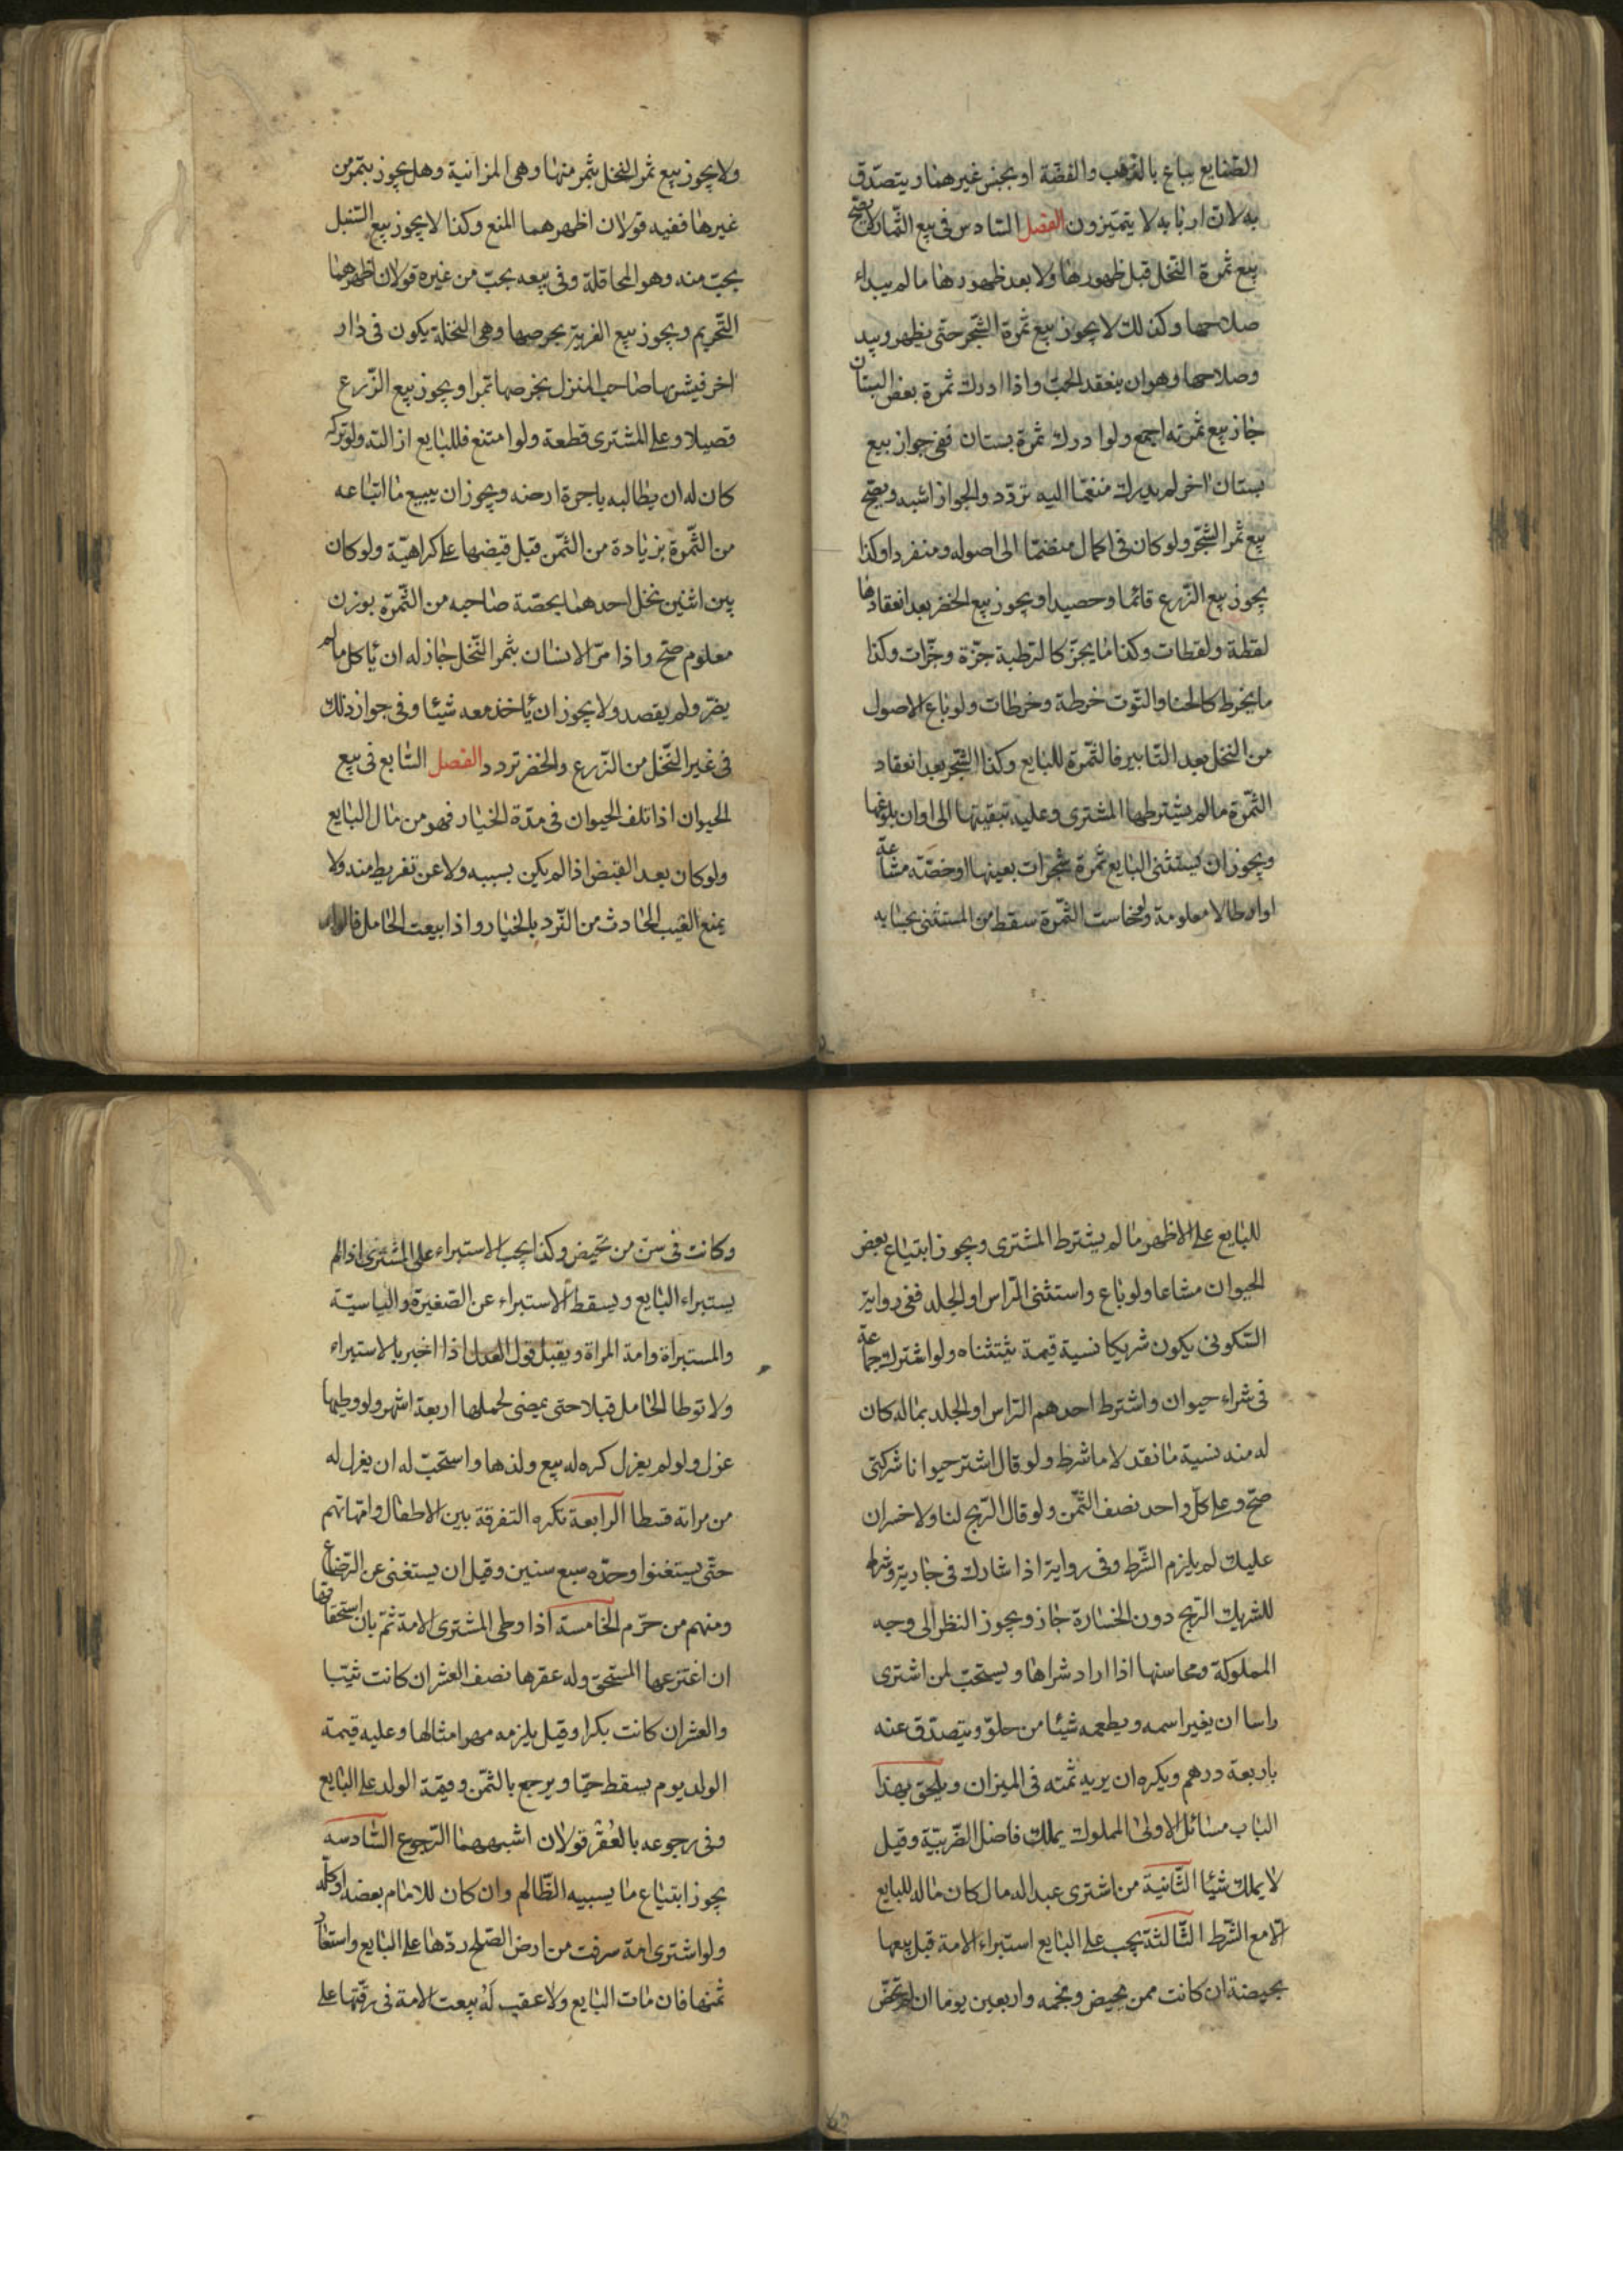 الصّنايع يباع بالذهب والفضّة او بجنس غيرهما ويتصدّق
به لانّ اربابه لا يتميّزون الفصل السّادس فى بيع الثّمار لا يصحّ
بيع ثمرة النّخل قبل ظهورها ولا بعد ظهورها ما لم يبداء
صلاحها وكذلك لا يجوز بيع ثمرة الشّجر حتّى يظهر ويبد
وصلاحها وهو ان ينعقد الحبّ واذا ادرك ثمرة بعض البستان
جاز بيع ثمرته اجمع ولو ادرك ثمرة بستان ففى جواز بيع
بستان اخر لم يدرك منضمّا اليه تردّد والجواز اشبه ويصحّ
بيع ثمر الشّجر ولو كان فى اكمال منضمّا الى اصوله ومنفردا وكذا
يجوز بيع الزّرع قائما وحصيدا ويجوز بيع الخضر بعد انعقادها
لقطة ولقطات وكذا ما يجزّ كالرّطبة جزّة وجزّات وكذا
ما يخرط كالحنا والتّوت خرطة وخرطات ولو باع الاصول
من النخل بعد التّابير فالثّمرة للبايع وكذا الشّجر بعد انعقاد
الثّمرة ما لم يشترطها المشترى وعليه تبقيتها الى اوان بلوغها
ويجوز ان يستثنى البايع ثمرة شجرات بعينها او حصّته مشاعة
او ارطالا معلومة ولو خاست الثّمرة سقط من المستثنى بحسابه
ولا يجوز بيع ثمر النخل بثمر منها وهى المزابنية وهل يجوز بتمر من
غيرها ففيه قولان اظهرهما المنع وكذا لا يجوز بيع السّنبل
بحبّ منه وهو المحاقلة وفى بيعه بحبّ من غيره قولان اظهرهما
التّحريم ويجوز بيع العرية بخرصها وهى النخلة يكون فى دار
اخر فيشتريها صاحب المنزل بخرصها تمرا ويجوز بيع الزّرع
قصيلا وعلى المشترى قطعة ولو امتنع فللبايع ازالته ولو تركه
كان له ان يطالبه باجرة ارضه ويجوز ان يبيع ما ابتاعه
من الثّمرة بزيادة من الثّمن قبل قبضها على كراهيّة ولو كان
بين اثنين نخل احدهما بحصّة صاحبه من الثّمرة بوزن
معلوم صحّ واذا مرّ الانسان بثمر النّخل جاز له ان يأكل ما لم
يضرّ ولم يقصد ولا يجوز ان يأخذ معه شيئا وفى جواز ذلك
فى غير النّخل من الزّرع والخضر تردد الفصل السّابع فى بيع
الحيوان اذا تلف الحيوان فى مدّة الخيار فهو من مال البايع
ولو كان بعد القبض اذا لم يكن بسببه ولا عن تفريط منه ولا
يمنع العيب الحادث من الرّد بالخيار واذا بيعت الحامل فالولد
للبايع على الاظهر ما لم يشترط المشترى ويجوز ابتياع بعض
الحيوان مشاعا ولو باع واستثنى الرّاس او الجلد ففى رواية
السّكونى يكون شريكا نسبة قيمة ولو اشترك جماعة
فى شراء حيوان واشترط احدهم الرّاس او الجلد بماله كان
له منه نسبة ما نقد لا ما شرط ولو قال اشتر حيوانا شركتى
صحّ وعلى كلّ واحد نصف الثّمن ولو قال الرّبح لنا ولا خسران
عليك لم يلزم الشّرط وفى رواية اذا شارك فى جارية وشرط
للشريك الرّبح دون الخسارة جاز ويجوز النظر الى وجه
المملوكة ومحاسنها اذا اراد شراها ويستحبّ لمن اشترى
راسا ان يغيّر اسمه ويطعمه شيئا من حلوّ ويتصدّق عنه
باربعة درهم ويكره ان يريه ثمنه فى الميزان ويلحق بهذا
الباب مسائل الاولى المملوك يملك فاضل الضّريبّة وقيل
لا يملك شيئا الثّانية من اشترى عبدا له مال كان ماله للبايع
الّا مع الشّرط الثّالثة يجب على البايع استبراء الامة قبل بيعها
بحيضة ان كانت ممن يحيض وبخمه واربعين يوما ان لم تحض
وكانت فى سنّ من تحيض وكذا يجب الاستبراء على المشترى اذا لم
يستبراء البايع ويسقط الاستبراء عن الصّغيرة والياسيّة
والمستبراة وامة المراة ويقبل قول العدل اذا اخبر بالاستبراء
ولا توطا الحامل قبلا حتى يمضى لحملها اربعة اشهر ولو وطيها
عزل ولو لم يعزل كره له بيع ولدها واستحبّ له ان يعزل له
من مراثه قسطا الرابعة تكره التفرقة بين الاطفال وامّهاتهم
حتّى يستغنوا وحدّه سبع سنين وقيل ان يستغنى عن الرّضاع
ومنهم من حرّم الخامسة اذا وطى المشترى الامة ثمّ بان استحقاقها
ان اعتزعها المستحق وله عقرها نصف العشر ان كانت ثيّبا
والعشر ان كانت بكرا وقيل يلزمه مهر امثالها وعليه قيمة
الولد يوم يسقط حيّا ويرجع بالثّمن وقيمة الولد على البايع
وفى رجوعه بالعقر قولان اشبههما الرّجوع السّادسه
يجوز ابتياع ما يسبيه الظّالم وان كان للامام بعضه او كلّه
ولو اشترى امة سرقت من ارض الصّلح ردّها على البايع واستعاد
ثمنها فان مات البايع ولا عقب له بيعت الامة فى رقّتها على